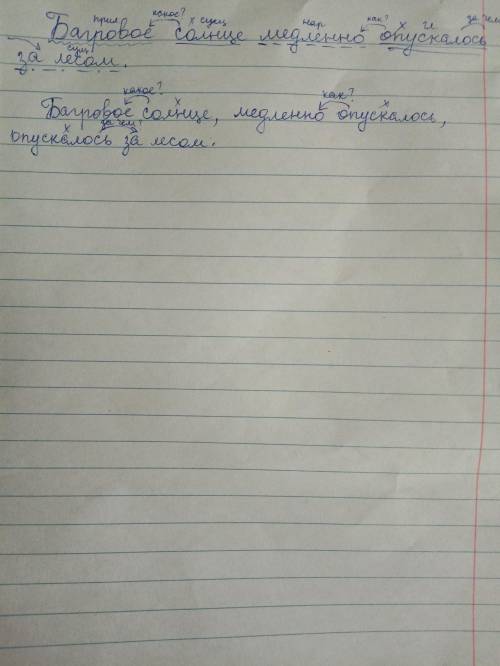 прил какое? х сущ нар как? х гл за чем
Багровое солнце медленно опускалось
сущ
за лесом.
какое? х как? х
Багровое солнце, медленно опускалось,
х за чем?
опускалось за лесом.